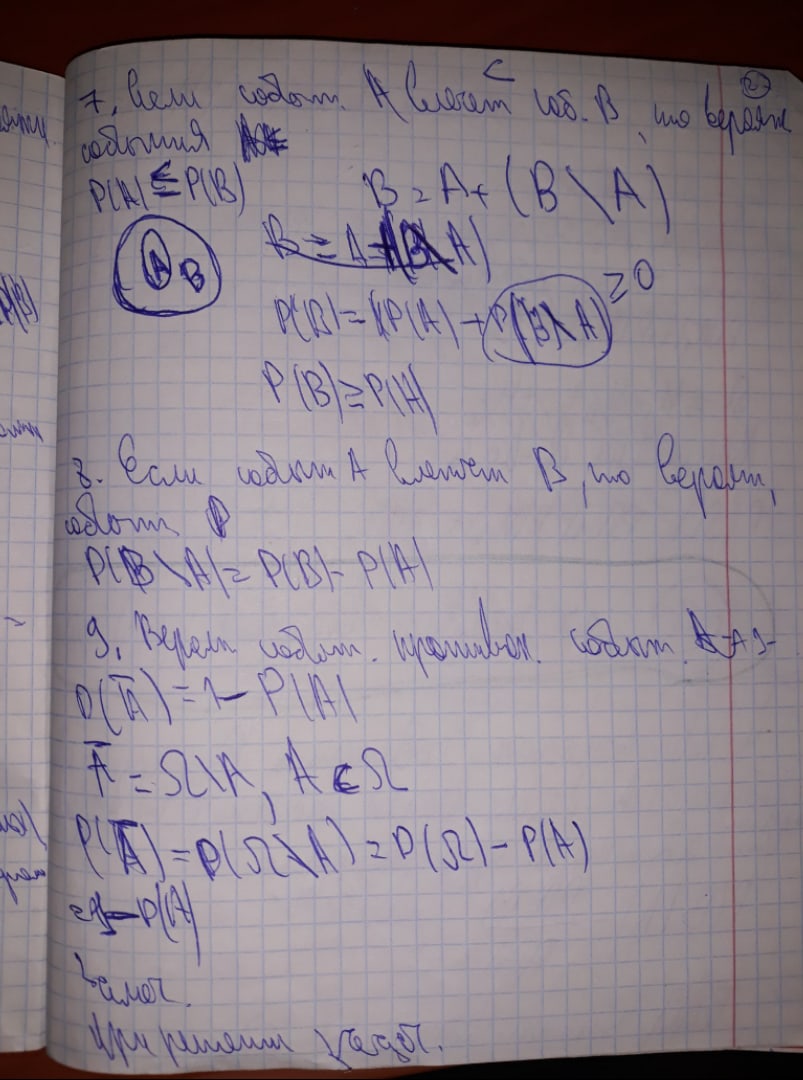 ⊂ 2
7. Если событ. A влечет соб. B, то вероятн
события
P(A) ≤ P(B) B = A + (B \ A)
A B
B = A + (B \ A)
P(B) = P(A) + P(B \ A) ≥ 0
P(B) ≥ P(A)
8. Если событ A влечет B, то вероятн,
событ
P(B \ A) = P(B) - P(A)
9. Вероят событ. противоп. событ. A
P(A̅) = 1 - P(A)
A̅ = Ω \ A, A ⊂ Ω
P(A̅) = P(Ω \ A) = P(Ω) - P(A)
= 1 - P(A)
Замеч.
При решении задач.